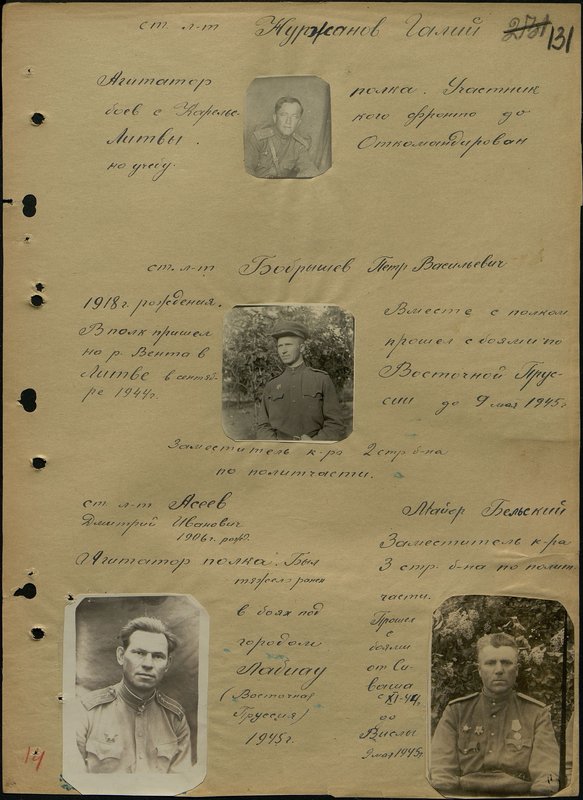 ст. л-т Нуржанов Галий 131
Агитатор полка. Участник
боев с Карельс- кого фронта до
Литвы. Откомандирован
на учебу.
ст. л-т Бобрышев Петр Васильевич
1918 г. рождения.
В полк пришел
на р. Вента в
Литве в сентяб-
ре 1944 г.
Вместе с полком
прошел с боями по
Восточной Прус-
сии до 9 мая 1945 г.
Заместитель к-ра 2 стр б-на
по политчасти.
ст. л-т Асеев
Дмитрий Иванович
1906 г. рожд.
Агитатор полка. Был
тяжело ранен
в боях под
городом
Лабиау
(Восточная
Пруссия)
1945 г.
Майор Бельский
Заместитель к-ра
3 стр. б-на по полит
части.
Прошел
с
боями
от Си-
ваша
до
Вислы
9 мая 1945 г
14